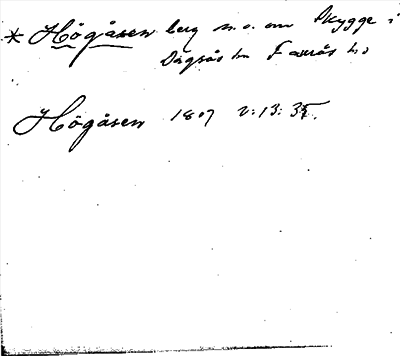 * Högåsen berg n.o. om Skygge i
Dagsås sn Faurås hd
Högåsen 1807 V:13:35.